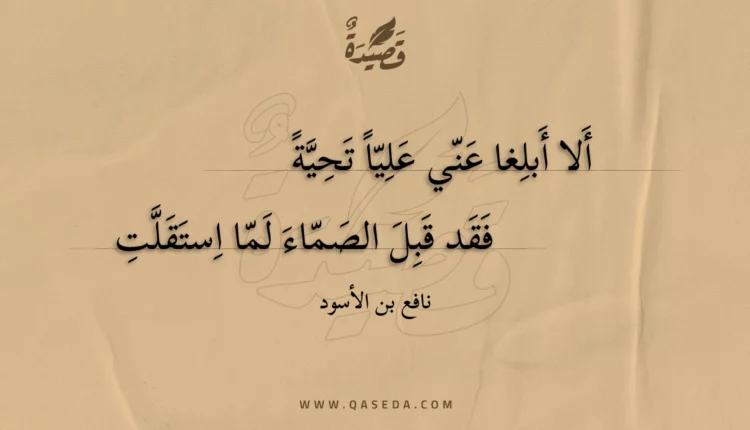 قَصِيدَةٌ
أَلا أَبلِغا عَنّي عَلِيّاً تَحِيَّةً
فَقَد قَبِلَ الصَمّاءَ لَمّا اِستَقَلَّتِ
نافع بن الأسود
WWW.QASEDA.COM